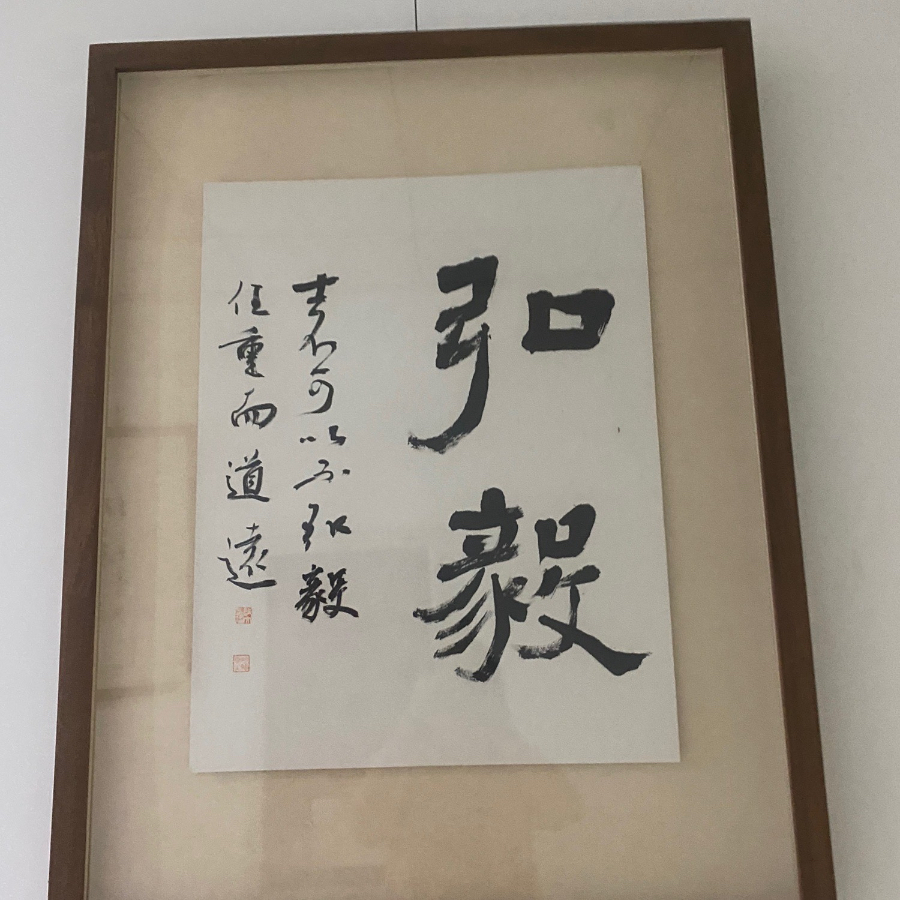 弘毅
士不可以不弘毅
任重而道遠